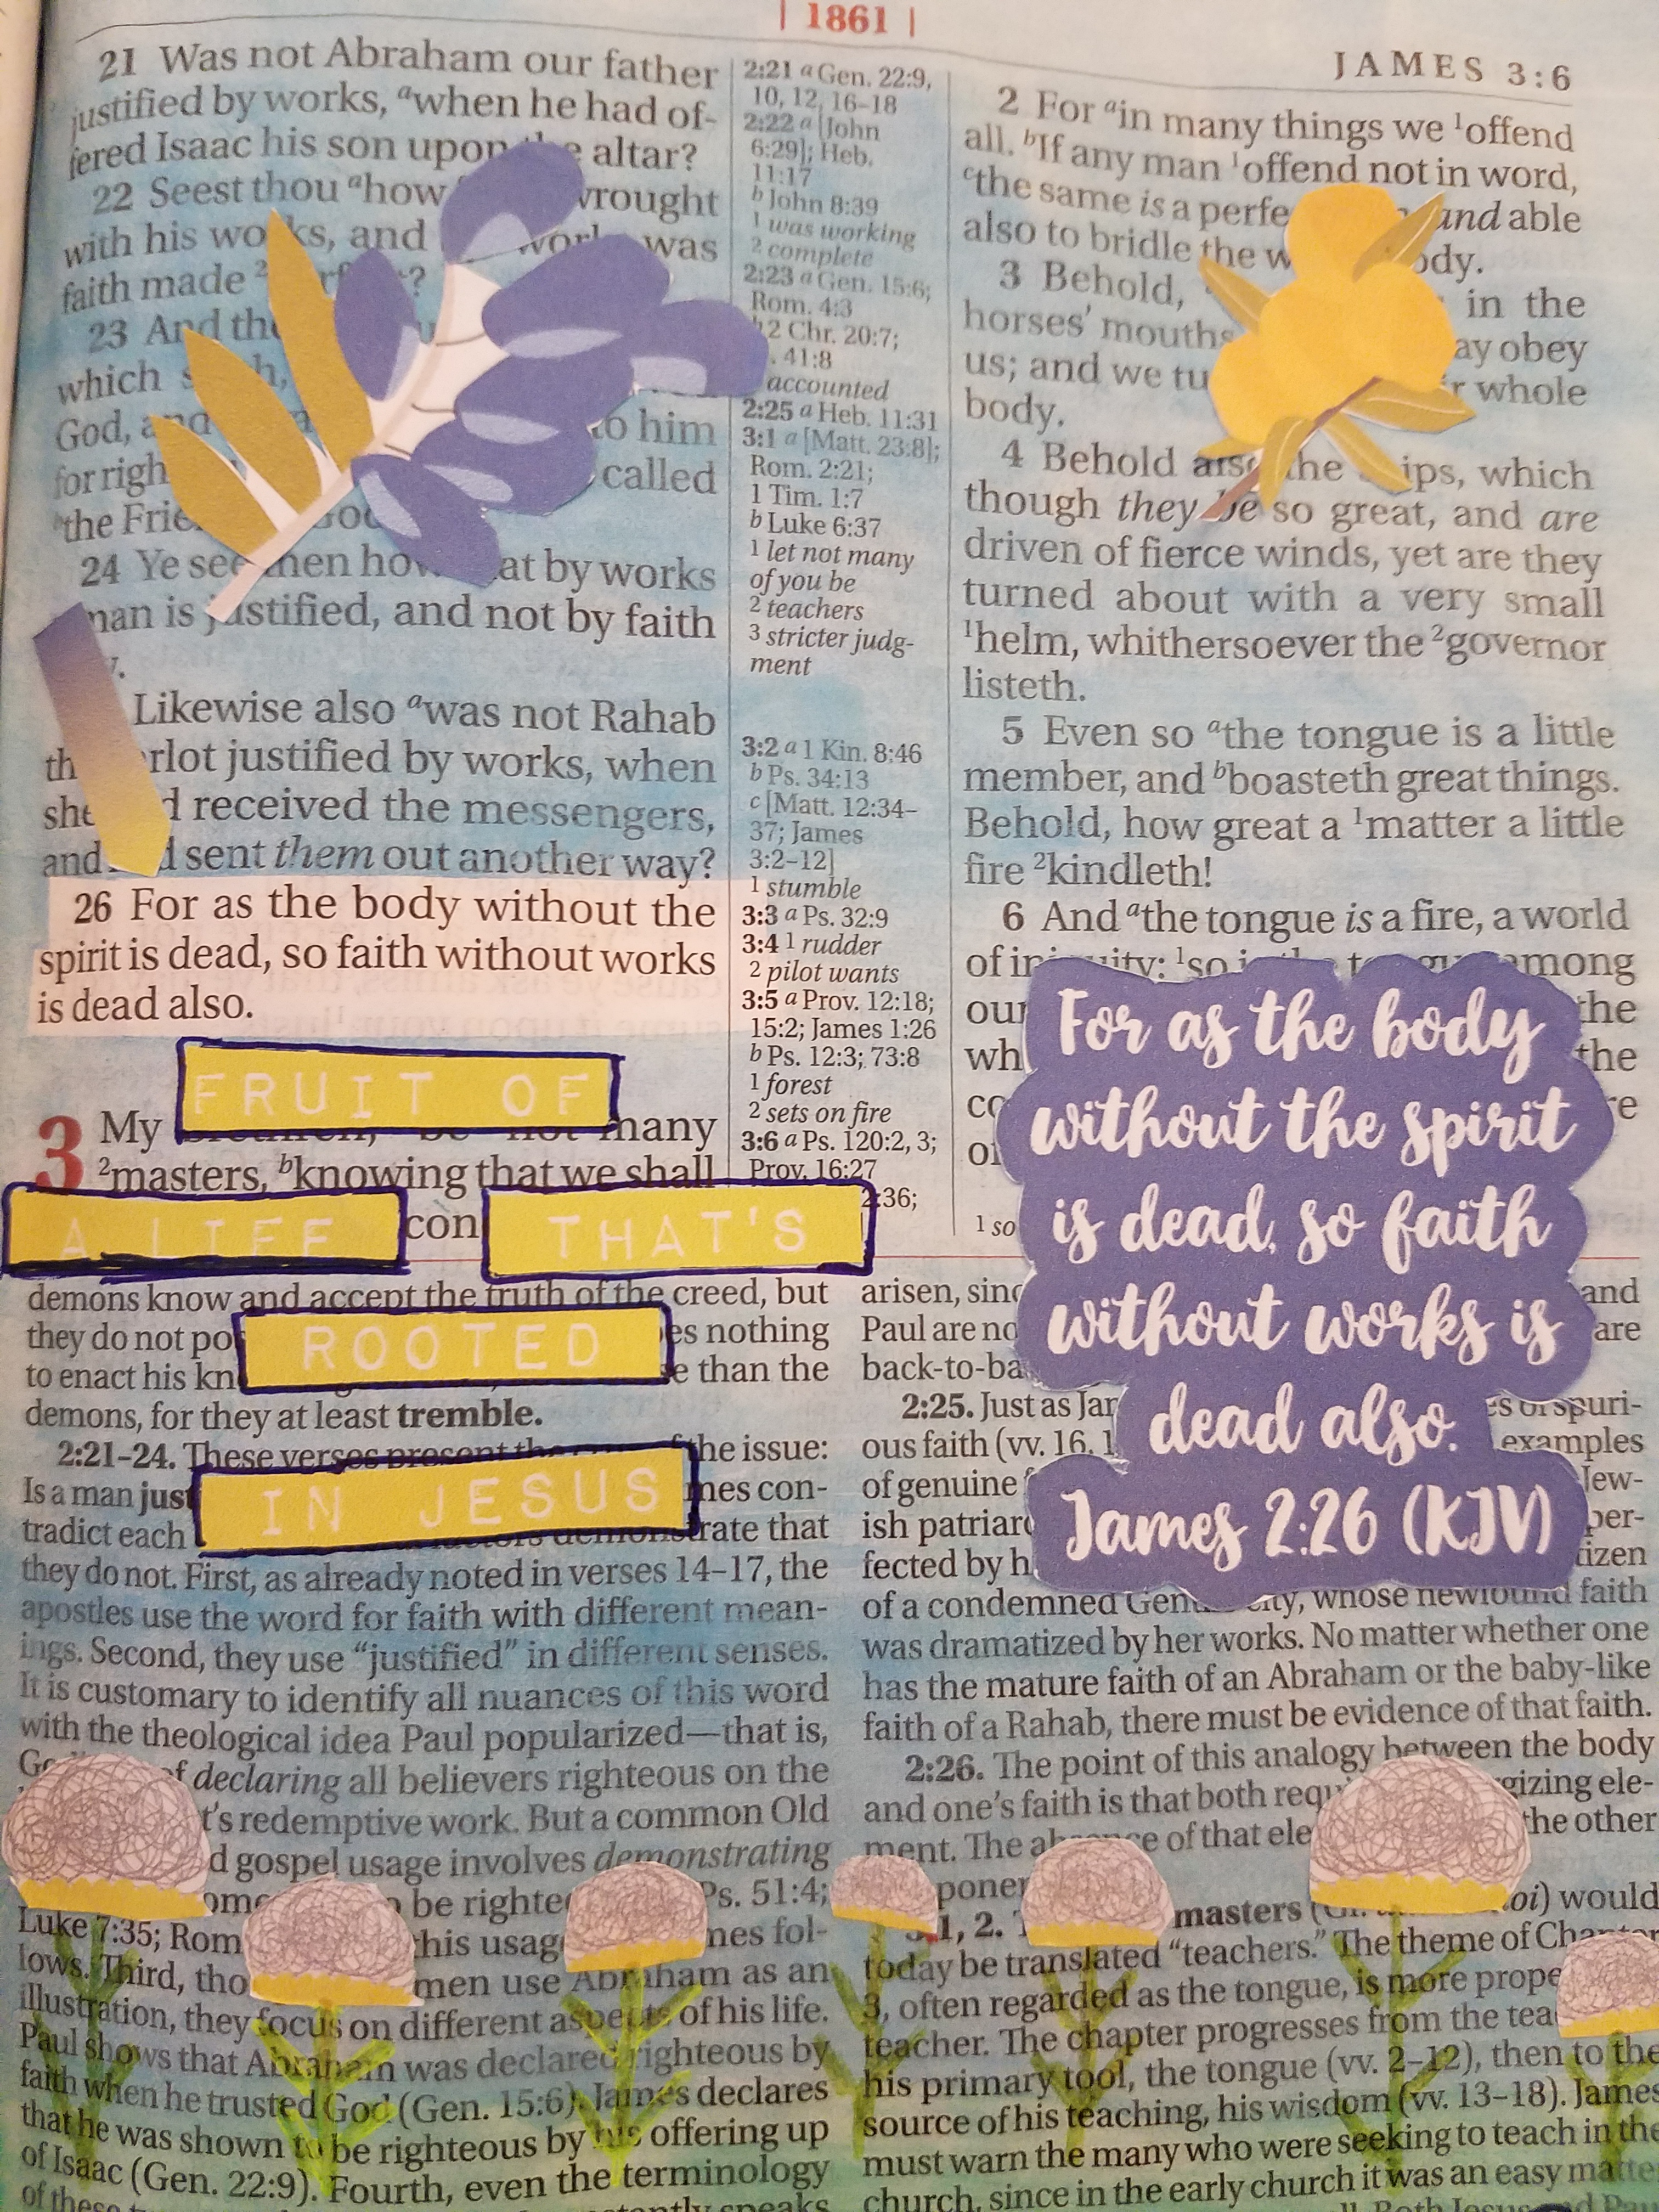 | 1861 |
JAMES 3:6
21 Was not Abraham our father
justified by works, ᵃwhen he had of-
fered Isaac his son upon the altar?
22 Seest thou ᵃhow wrought
with his works, and was
faith made ²
23 And
which
God, to him
for called
ᵇthe
24 Ye see at by works
man is justified, and not by faith
Likewise also ᵃwas not Rahab
justified by works, when
received the messengers,
and sent them out another way?
26 For as the body without the
spirit is dead, so faith without works
is dead also.
FRUIT OF
3 My many
²masters, ᵇknowing that we shall
A LIFE con THAT'S
2:21 ᵃ Gen. 22:9,
10, 12, 16–18
2:22 ᵃ [John
6:29]; Heb.
11:17
ᵇ John 8:39
1 was working
2 complete
2:23 ᵃ Gen. 15:6;
Rom. 4:3
2 Chr. 20:7;
41:8
accounted
2:25 ᵃ Heb. 11:31
3:1 ᵃ [Matt. 23:8];
Rom. 2:21;
1 Tim. 1:7
ᵇ Luke 6:37
1 let not many
of you be
2 teachers
3 stricter judg-
ment
3:2 ᵃ 1 Kin. 8:46
ᵇ Ps. 34:13
ᶜ [Matt. 12:34–
37; James
3:2–12]
1 stumble
3:3 ᵃ Ps. 32:9
3:4 1 rudder
2 pilot wants
3:5 ᵃ Prov. 12:18;
15:2; James 1:26
ᵇ Ps. 12:3; 73:8
1 forest
2 sets on fire
3:6 ᵃ Ps. 120:2, 3;
Prov. 16:27
:36;
1 so
2 For ᵃin many things we ¹offend
all. ᵇIf any man ¹offend not in word,
ᶜthe same is a and able
also to bridle the
3 Behold, in the
horses' mouths obey
us; and we whole
body.
4 Behold also the ships, which
though they be so great, and are
driven of fierce winds, yet are they
turned about with a very small
¹helm, whithersoever the ²governor
listeth.
5 Even so ᵃthe tongue is a little
member, and ᵇboasteth great things.
Behold, how great a ¹matter a little
fire ²kindleth!
6 And ᵃthe tongue is a fire, a world
of among
the
the
For as the body
without the spirit
is dead, so faith
without works is
dead also.
James 2:26 (KJV)
demons know and accept the truth of the creed, but
they do not nothing
ROOTED
to enact his than the
demons, for they at least tremble.
2:21–24. These verses present the the issue:
Is a man con-
IN JESUS
tradict each demonstrate that
they do not. First, as already noted in verses 14–17, the
apostles use the word for faith with different mean-
ings. Second, they use “justified” in different senses.
It is customary to identify all nuances of this word
with the theological idea Paul popularized—that is,
declaring all believers righteous on the
redemptive work. But a common Old
gospel usage involves demonstrating
be Ps. 51:4;
Luke 7:35; this fol-
lows. Third, men use Abraham as an
illustration, they focus on different aspects of his life.
Paul shows that Abraham was declared righteous by
faith when he trusted God (Gen. 15:6). James declares
that he was shown to be righteous by his offering up
of Isaac (Gen. 22:9). Fourth, even the terminology
of these speaks
arisen, and
Paul are are
2:25. Just as spuri-
ous faith (vv. 16, examples
of genuine Jew-
ish per-
fected by
of a condemned city, whose newfound faith
was dramatized by her works. No matter whether one
has the mature faith of an Abraham or the baby-like
faith of a Rahab, there must be evidence of that faith.
2:26. The point of this analogy between the body
and one's faith is that both ele-
ment. The absence of that the other
1, 2. masters ( would
today be translated “teachers.” The theme of Chapter
3, often regarded as the tongue, is more
teacher. The chapter progresses from the
his primary tool, the tongue (vv. 2–12), then to the
source of his teaching, his wisdom (vv. 13–18). James
must warn the many who were seeking to teach in the
church, since in the early church it was an easy matter
Both Jesus and Paul